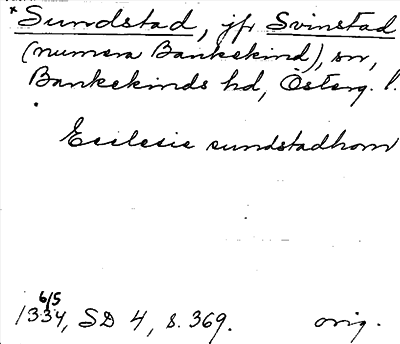 * Sundstad, jfr Svinstad
(numera Bankekind), sn,
Bankekinds hd, Österg. l.
Ecclesie sundstadhom
6/5
1334, SD 4, s. 369. orig.